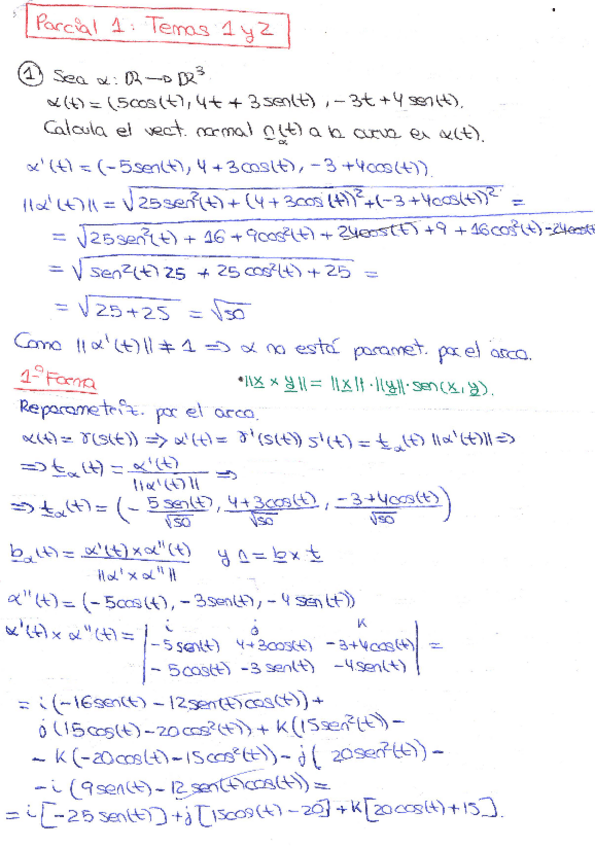 Parcial 1: Temas 1 y 2
① Sea α: ℝ → ℝ³
α(t) = (5cos(t), 4t + 3sen(t), -3t + 4sen(t)).
Calcula el vect. normal n_α(t) a la curva en α(t).
α'(t) = (-5sen(t), 4 + 3cos(t), -3 + 4cos(t)).
||α'(t)|| = √(25sen²(t) + (4 + 3cos(t))² + (-3 + 4cos(t))²) =
= √(25sen²(t) + 16 + 9cos²(t) + 24cos(t) + 9 + 16cos²(t) - 24cos(t
= √(sen²(t) 25 + 25cos²(t) + 25) =
= √(25 + 25) = √50
Como ||α'(t)|| ≠ 1 => α no está paramet. por el arco.
1ª Forma
• ||x × y|| = ||x|| · ||y|| · sen(x, y).
Reparametriz. por el arco.
α(t) = γ(s(t)) => α'(t) = γ'(s(t)) s'(t) = t_α(t) ||α'(t)|| =>
=> t_α(t) = α'(t) / ||α'(t)|| =>
=> t_α(t) = (- 5sen(t)/√50, 4+3cos(t)/√50, -3+4cos(t)/√50)
b_α(t) = α'(t) × α''(t) / ||α' × α''|| y n = b × t
α''(t) = (-5cos(t), -3sen(t), -4sen(t))
α'(t) × α''(t) = | i j k
-5sen(t) 4+3cos(t) -3+4cos(t)
-5cos(t) -3sen(t) -4sen(t) | =
= i(-16sen(t) - 12sen(t)cos(t)) +
j(15cos(t) - 20cos²(t)) + k(15sen²(t)) -
- k(-20cos(t) - 15cos²(t)) - j(20sen²(t)) -
- i(9sen(t) - 12sen(t)cos(t)) =
= i[-25sen(t)] + j[15cos(t) - 20] + k[20cos(t) + 15].